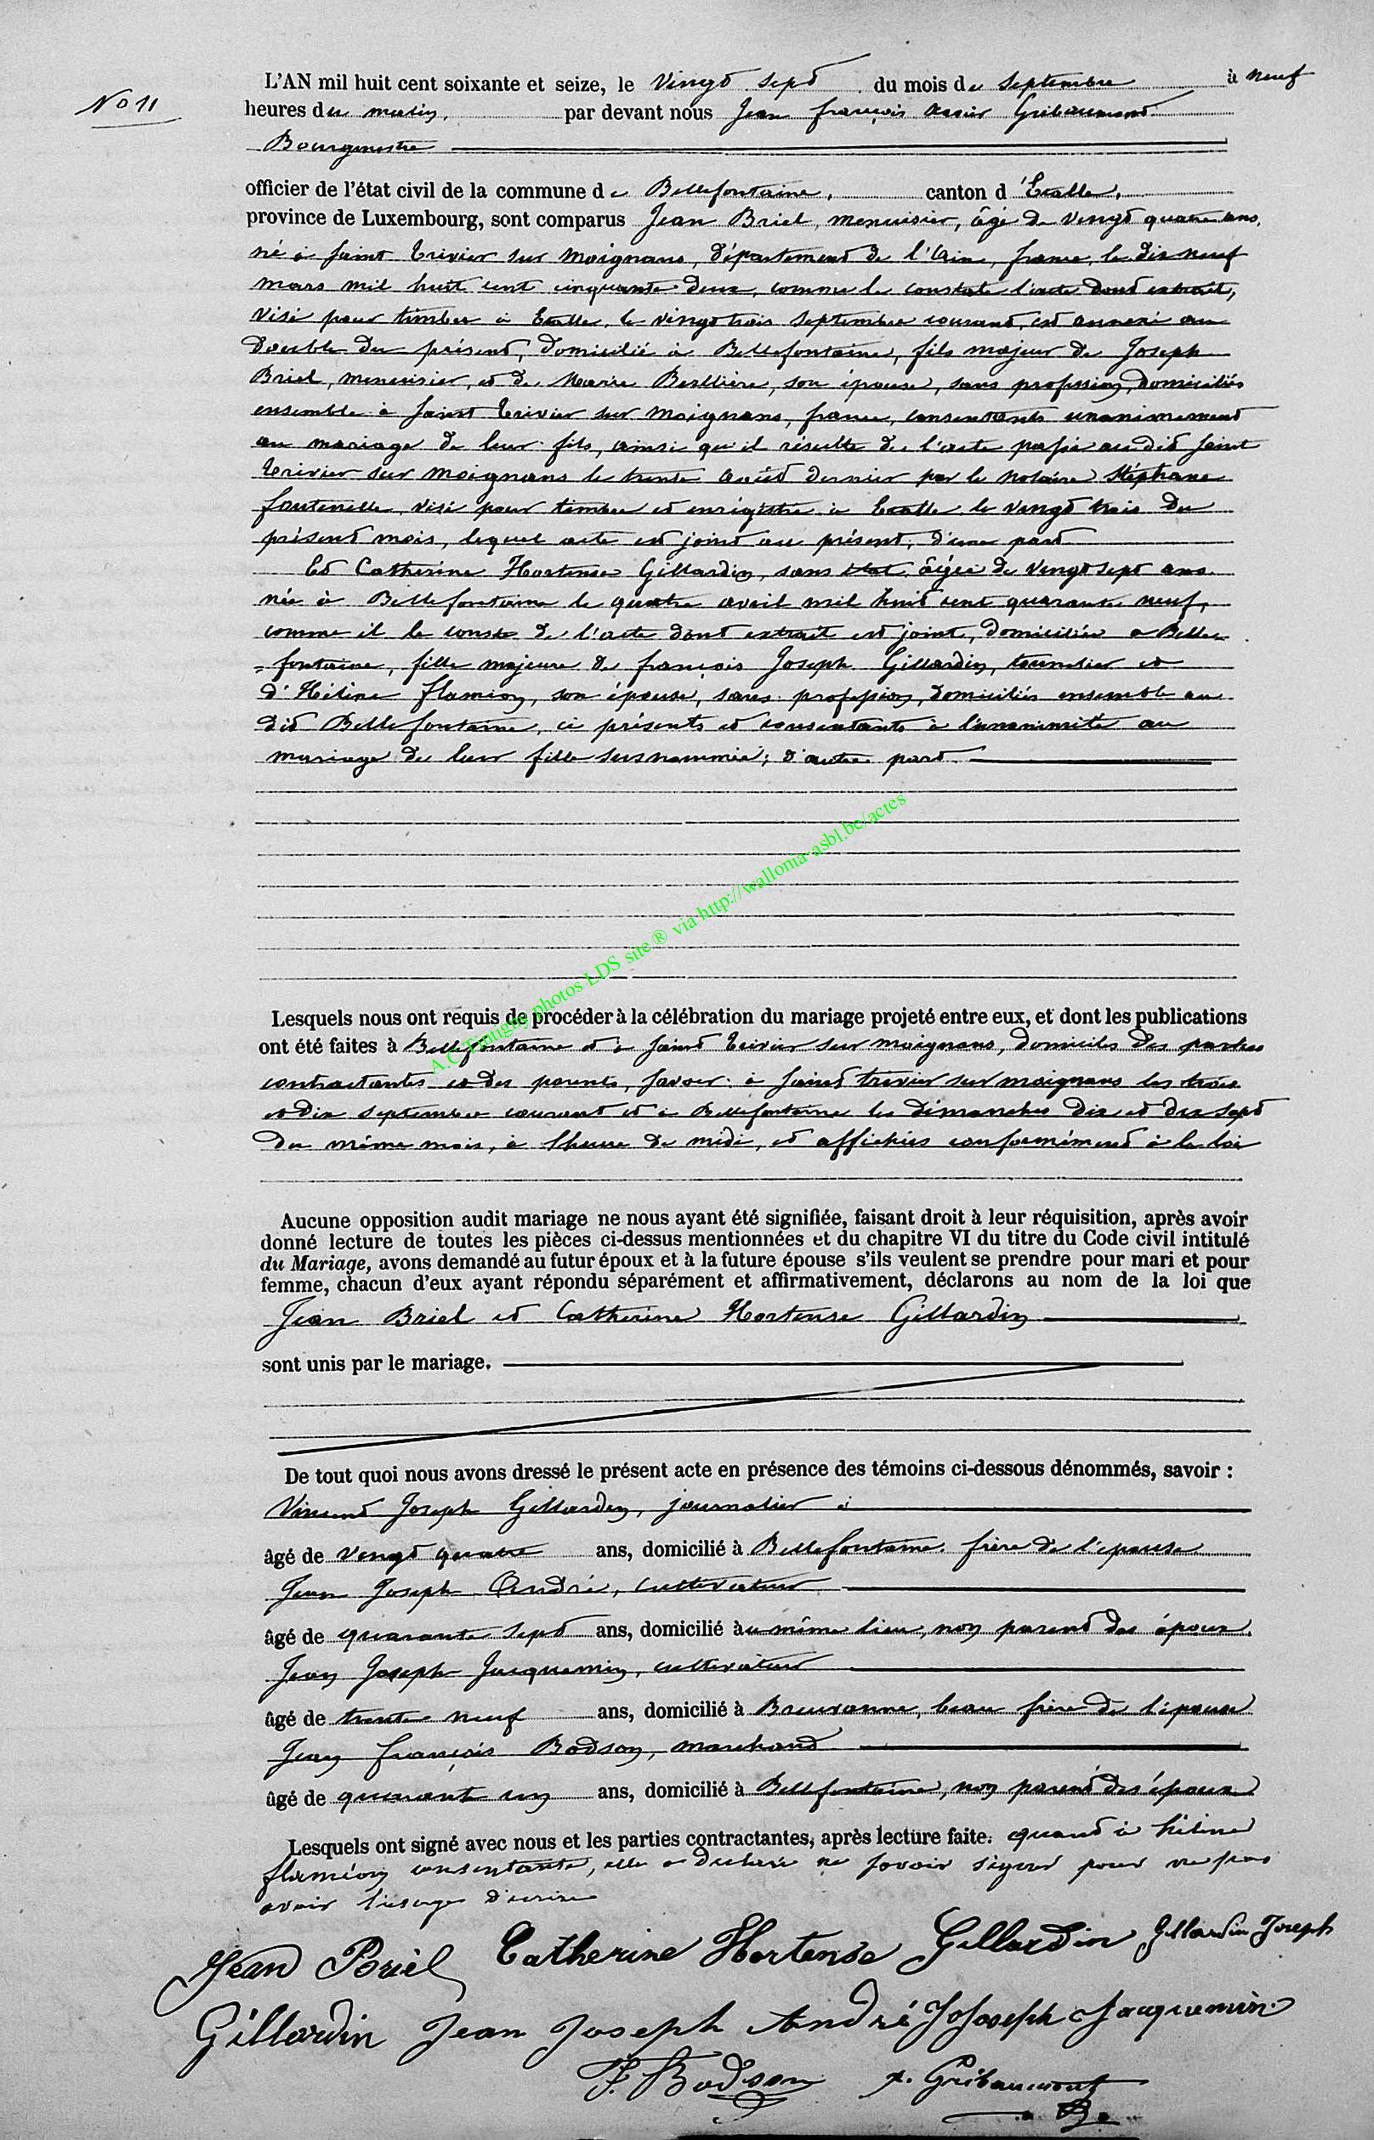 No 11
L'AN mil huit cent soixante et seize, le vingt sept du mois de septembre à neuf
heures du matin, par devant nous Jean françois Gribaumont
Bourgmestre
officier de l'état civil de la commune de Bellefontaine, canton d'Etalle,
province de Luxembourg, sont comparus Jean Briel, menuisier, âgé de vingt quatre ans,
né à saint trivier sur moignans, département de l'Ain, france, le dix neuf
mars mil huit cent cinquante deux, comme le constate l'acte dont extrait,
visé pour timbre à Etalle, le vingt trois septembre courant, est annexé au
double du présent, domicilié à Bellefontaine, fils majeur de Joseph
Briel, menuisier, et de Marie son épouse, sans profession, domiciliés
ensemble à saint trivier sur moignans, france, consentants unanimement
au mariage de leur fils, ainsi qu'il résulte de l'acte passé audit saint
trivier sur moignans le trente août dernier par le notaire Stéphane
fontenelle, visé pour timbre et enrégistré à Etalle le vingt trois du
présent mois, lequel acte est joint au présent, d'une part
Et Catherine Hortense Gillardin, sans état, âgée de vingt sept ans
née à Bellefontaine le quatre avril mil huit cent quarante neuf,
comme il le conste de l'acte dont extrait est joint, domiciliée à Belle
=fontaine, fille majeure de françois Joseph Gillardin, et
d'Hélène flamion, son épouse, sans profession, domiciliés ensemble au
dit Bellefontaine, ci présents et consentants à l'unanimité au
mariage de leur fille susnommée; d'autre part
A.C Tintigny photos LDS site ® via http://wallonia-asbl.be/actes
Lesquels nous ont requis de procéder à la célébration du mariage projeté entre eux, et dont les publications
ont été faites à Bellefontaine et à saint trivier sur moignans, domiciles des parties
contractantes et des parents, savoir: à saint trivier sur moignans les trois
et dix septembre courant et à Bellefontaine les dimanches dix et dix sept
du même mois, à l'heure de midi, et affichées conformément à la loi
Aucune opposition audit mariage ne nous ayant été signifiée, faisant droit à leur réquisition, après avoir
donné lecture de toutes les pièces ci-dessus mentionnées et du chapitre VI du titre du Code civil intitulé
du Mariage, avons demandé au futur époux et à la future épouse s'ils veulent se prendre pour mari et pour
femme, chacun d'eux ayant répondu séparément et affirmativement, déclarons au nom de la loi que
Jean Briel et Catherine Hortense Gillardin
sont unis par le mariage.
De tout quoi nous avons dressé le présent acte en présence des témoins ci-dessous dénommés, savoir :
Vincent Joseph Gillardin, journalier
âgé de vingt quatre ans, domicilié à Bellefontaine, frère de l'épouse
Jean Joseph André, cultivateur
âgé de quarante sept ans, domicilié au même lieu, non parent des époux.
Jean Joseph Jacquemin, cultivateur
âgé de trente neuf ans, domicilié à Breuvanne, beau frère de l'épouse
Jean françois Bodson, marchand
âgé de quarante un ans, domicilié à Bellefontaine, non parent des époux
Lesquels ont signé avec nous et les parties contractantes, après lecture faite. quant à hélène
flamion consentante, elle a déclaré ne savoir signer pour ne pas
avoir l'usage d'écrire
Jean Briel Catherine Hortense Gillardin Gillardin Joseph
Gillardin Jean Joseph André J Joseph Jacquemin
F. Bodson x. Gribaumont